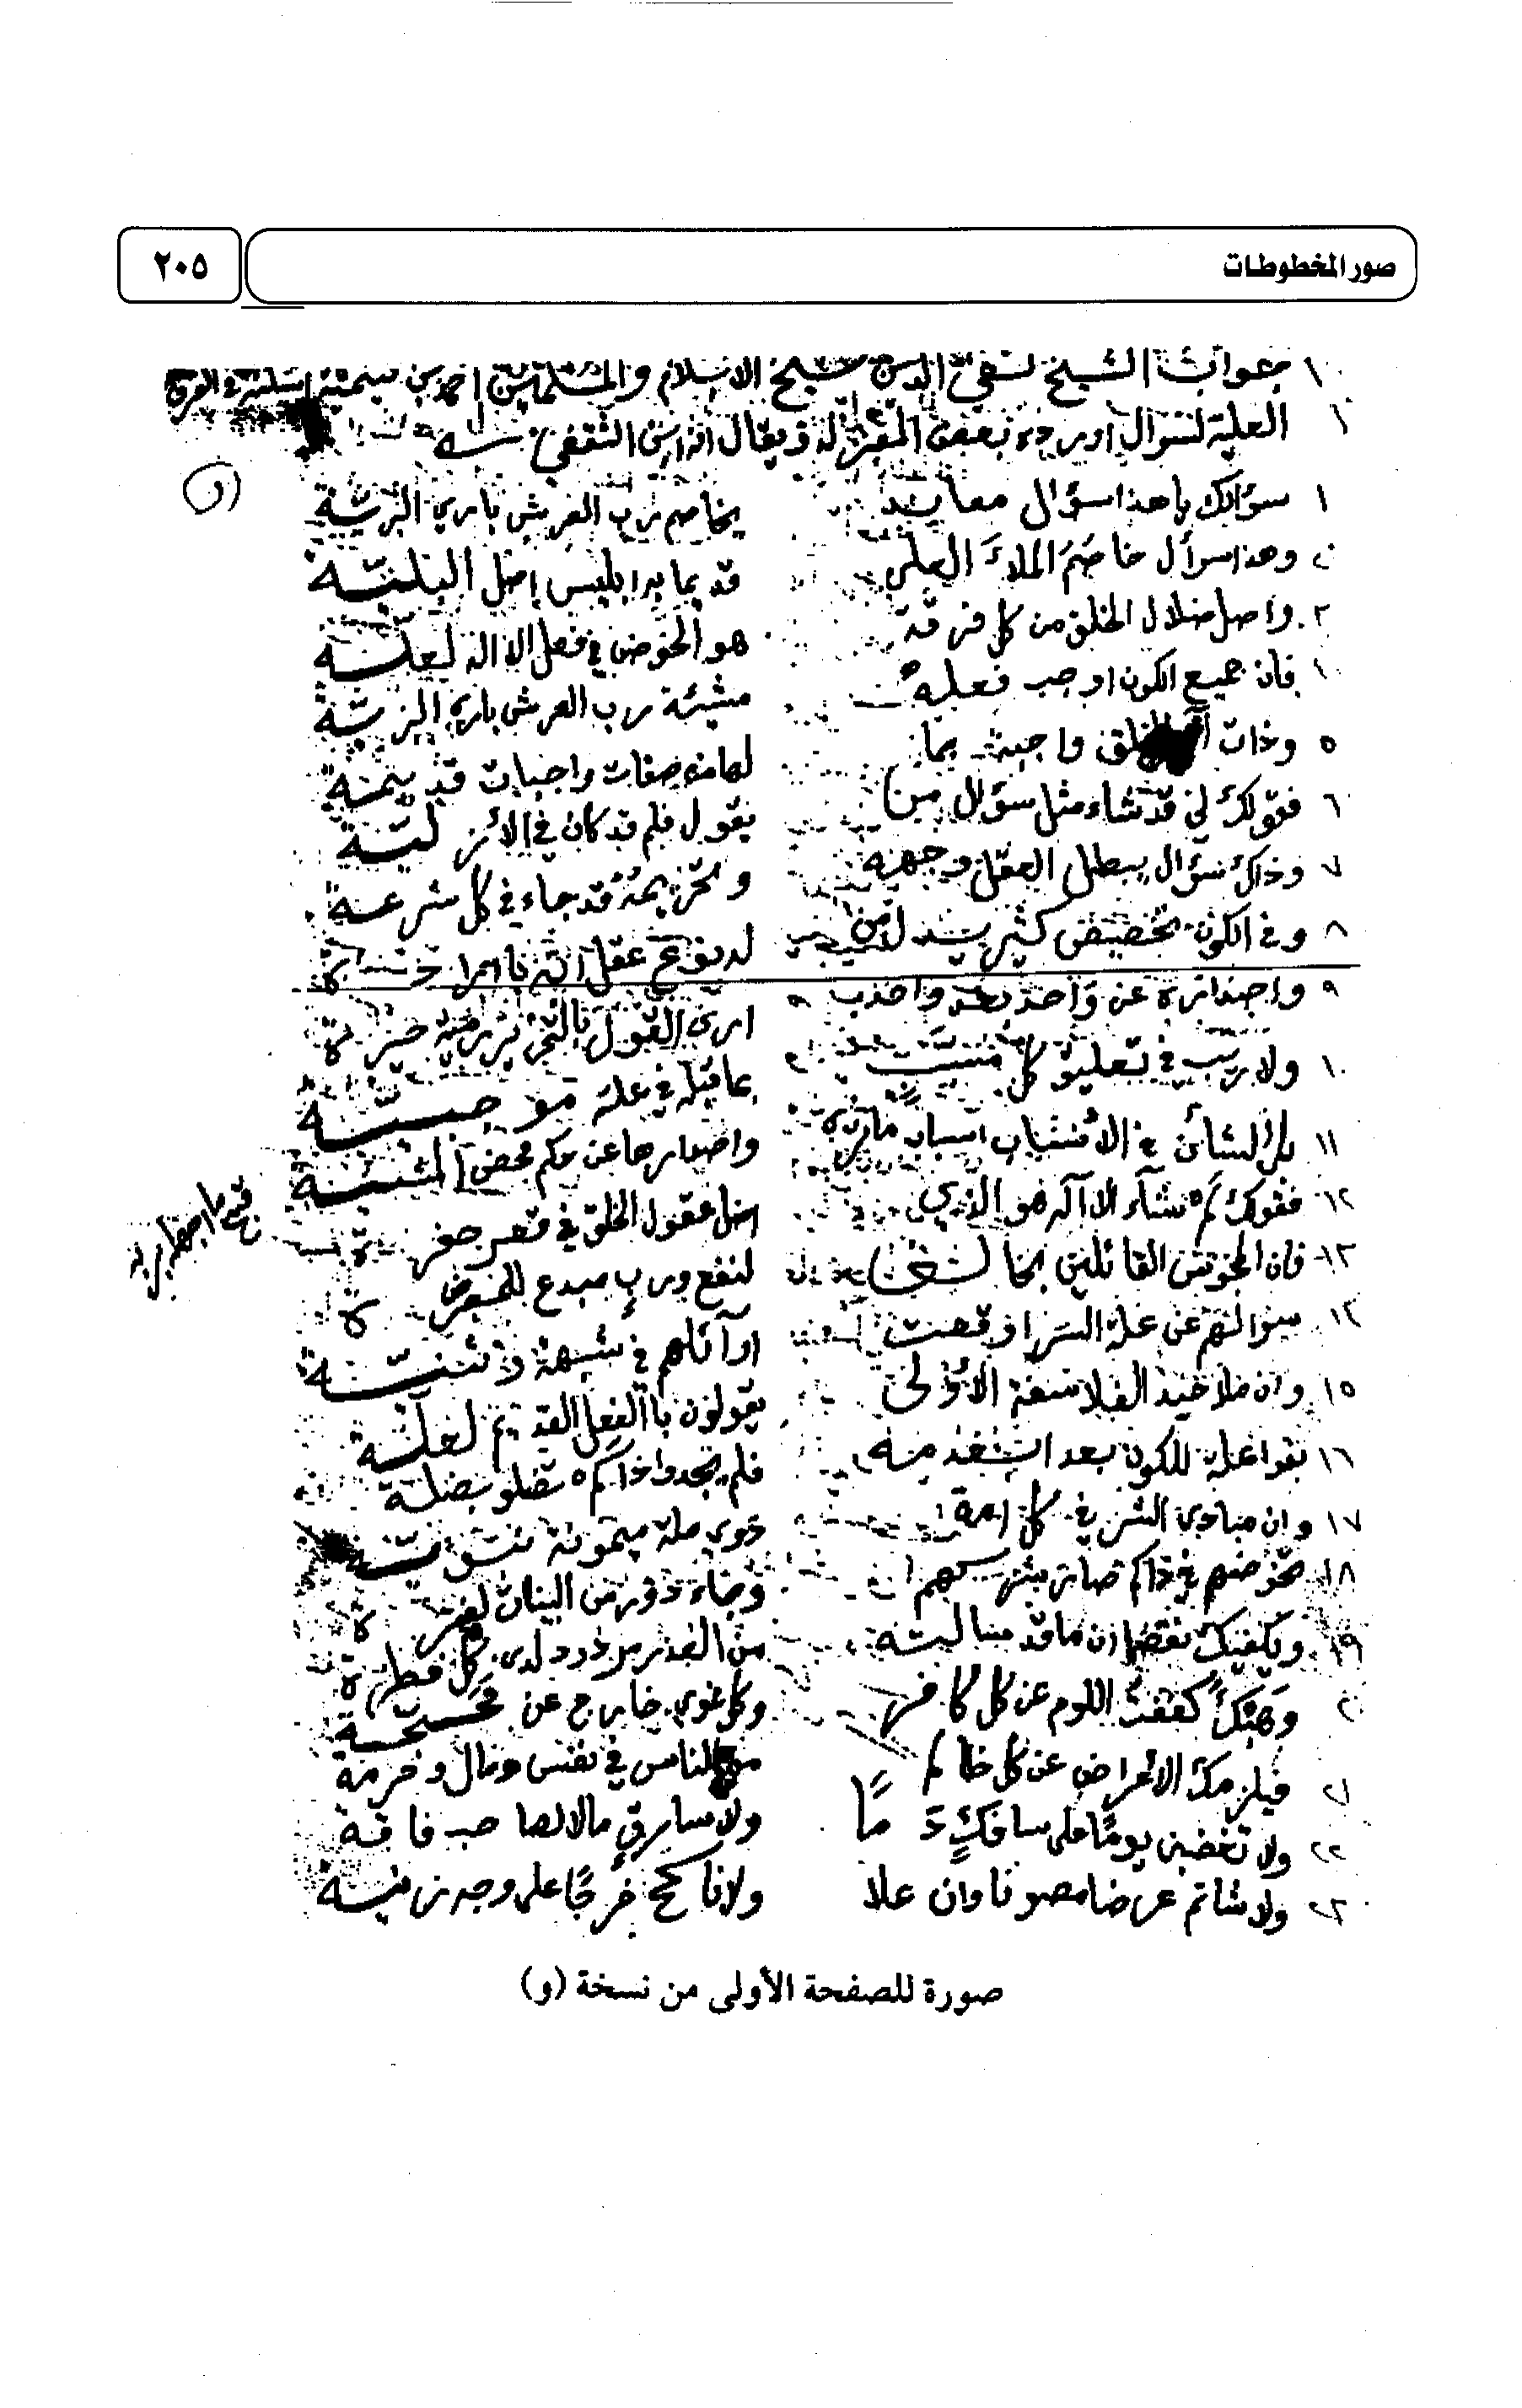 صور المخطوطات
٢٠٥
جواب الشيخ تقي الدين شيخ الاسلام والمسلمين احمد بن تيمية
العلية لسوال اورده بعض المعتزلة ويقال انه ابن الثقفي
(و)
١ سؤالك يا هذا سؤال معاند يخاصم رب العرش باري البرية
وهذا سوأل خاصم الملاءَ العلى قديما به ابليس اصل البلية
٣ واصل ضلال الخلق من كل فرقة هو الخوض في فعل الاله لعلة
فان جميع الكون اوجب فعله مشيئة رب العرش باري البرية
٥ وذات الخلق واجبة بما لها من صفات واجبات قديمة
٦ فقولك لي قد شاء مثل سؤال من يقول فلم قد كان في الازلية
٧ وذاك سؤال يبطل العقل وجهه وتحريمه قد جاء في كل شرعة
٨ وفي الكون تخصيص كثير يدل من له نوع عقل انه بارادة
٩ واصداره عن واحد بعد واحد ارى القول بالتجويز رمية حيرة
١٠ ولا ريب في تعليق كل مسبب بما قبله في علة موجبة
١١ بل الشأن في الاسباب اسباب ما ترى واصدارها عن حكم محض المشيئة
١٢ فقولك لم شآء الاآله هو الذي اضل عقول الخلق في قعر حفرة
١٣ فان المجوس القائلين بخالق لنفع ورب مبدع للمضرة
١٤ سؤالهم عن علة السر اوقعت اوآئلهم في شبهة
١٥ وان ملاحيد الفلاسفة الأولى يقولون باالفعل القديم لعلة
١٦ بغوا علة للكون بعد انعدامه فلم يجدوا ذاكم فضلو بضلة
١٧ وان مبادي الشر في كل امة ذوي ملة ميمونة نبوية
١٨ بخوضهم في ذاكم صار شركهم وجاء دروس البينات لفترة
١٩ ويكفيك نقضا ان ما قد سالته من العذر مردود لدى كل فطرة
٢٠ وَهَبْكَ كففتَ اللوم عن كل كافر وكل غوي خارج عن محجة
٢١ فيلزمك الاعراض عن كل ظالم من الناس في نفس ومال وحرمة
٢٢ ولا تغضبن يومًا على سافكٍ دمًا ولا سارق مالا لصاحب فاقة
٢٣ ولا شاتم عرضا مصونا وان علا ولا ناكح فرجًا على وجه زنية
صورة للصفحة الأولى من نسخة (و)